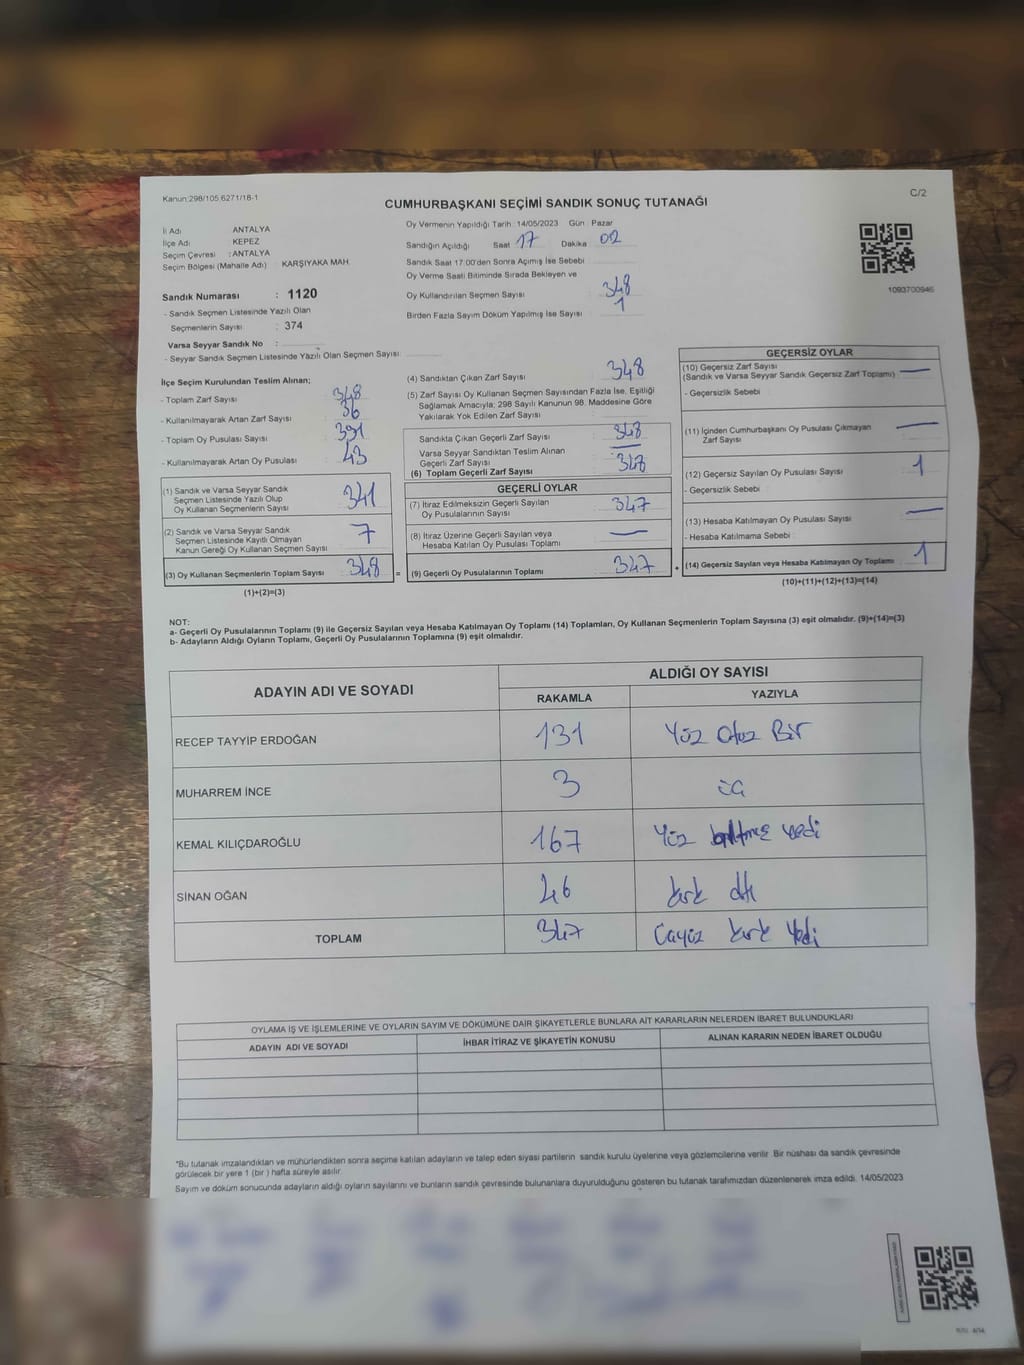 Kanun:298/105;6271/18-1
C/2
CUMHURBAŞKANI SEÇİMİ SANDIK SONUÇ TUTANAĞI
İl Adı ANTALYA
İlçe Adı KEPEZ
Seçim Çevresi : ANTALYA
Seçim Bölgesi (Mahalle Adı) : KARŞIYAKA MAH.
Sandık Numarası : 1120
- Sandık Seçmen Listesinde Yazılı Olan
Seçmenlerin Sayısı : 374
Varsa Seyyar Sandık No :
- Seyyar Sandık Seçmen Listesinde Yazılı Olan Seçmen Sayısı:
Oy Vermenin Yapıldığı Tarih : 14/05/2023 Gün : Pazar
Sandığın Açıldığı Saat 17 Dakika 02
Sandık Saat 17:00'den Sonra Açımış İse Sebebi
Oy Verme Saati Bitiminde Sırada Bekleyen ve
Oy Kullandırılan Seçmen Sayısı 348
Birden Fazla Sayım Döküm Yapılmış İse Sayısı 1
1093700946
İlçe Seçim Kurulundan Teslim Alınan;
- Toplam Zarf Sayısı : 348
- Kullanılmayarak Artan Zarf Sayısı : 36
- Toplam Oy Pusulası Sayısı : 391
- Kullanılmayarak Artan Oy Pusulası : 43
(1) Sandık ve Varsa Seyyar Sandık
Seçmen Listesinde Yazılı Olup
Oy Kullanan Seçmenlerin Sayısı 341
(2) Sandık ve Varsa Seyyar Sandık
Seçmen Listesinde Kayıtlı Olmayan
Kanun Gereği Oy Kullanan Seçmen Sayısı 7
(3) Oy Kullanan Seçmenlerin Toplam Sayısı 348
(1)+(2)=(3)
(4) Sandıktan Çıkan Zarf Sayısı 348
(5) Zarf Sayısı Oy Kullanan Seçmen Sayısından Fazla İse, Eşitliği
Sağlamak Amacıyla; 298 Sayılı Kanunun 98. Maddesine Göre
Yakılarak Yok Edilen Zarf Sayısı
Sandıkta Çıkan Geçerli Zarf Sayısı 348
Varsa Seyyar Sandıktan Teslim Alınan
Geçerli Zarf Sayısı
(6) Toplam Geçerli Zarf Sayısı 348
GEÇERLİ OYLAR
(7) İtiraz Edilmeksizin Geçerli Sayılan
Oy Pusulalarının Sayısı 347
(8) İtiraz Üzerine Geçerli Sayılan veya
Hesaba Katılan Oy Pusulası Toplamı —
(9) Geçerli Oy Pusulalarının Toplamı 347
GEÇERSİZ OYLAR
(10) Geçersiz Zarf Sayısı —
(Sandık ve Varsa Seyyar Sandık Geçersiz Zarf Toplamı)
- Geçersizlik Sebebi
(11) İçinden Cumhurbaşkanı Oy Pusulası Çıkmayan —
Zarf Sayısı
(12) Geçersiz Sayılan Oy Pusulası Sayısı 1
- Geçersizlik Sebebi
(13) Hesaba Katılmayan Oy Pusulası Sayısı —
- Hesaba Katılmama Sebebi
(14) Geçersiz Sayılan veya Hesaba Katılmayan Oy Toplamı 1
(10)+(11)+(12)+(13)=(14)
NOT:
a- Geçerli Oy Pusulalarının Toplamı (9) ile Geçersiz Sayılan veya Hesaba Katılmayan Oy Toplamı (14) Toplamları, Oy Kullanan Seçmenlerin Toplam Sayısına (3) eşit olmalıdır. (9)+(14)=(3)
b- Adayların Aldığı Oyların Toplamı, Geçerli Oy Pusulalarının Toplamına (9) eşit olmalıdır.
ADAYIN ADI VE SOYADI ALDIĞI OY SAYISI
RAKAMLA YAZIYLA
RECEP TAYYİP ERDOĞAN 131 Yüz Otuz Bir
MUHARREM İNCE 3 üç
KEMAL KILIÇDAROĞLU 167 Yüz altmış yedi
SİNAN OĞAN 46 kırk altı
TOPLAM 347 Üçyüz kırk Yedi
OYLAMA İŞ VE İŞLEMLERİNE VE OYLARIN SAYIM VE DÖKÜMÜNE DAİR ŞİKAYETLERLE BUNLARA AİT KARARLARIN NELERDEN İBARET BULUNDUKLARI
ADAYIN ADI VE SOYADI İHBAR İTİRAZ VE ŞİKAYETİN KONUSU ALINAN KARARIN NEDEN İBARET OLDUĞU
*Bu tutanak imzalandıktan ve mühürlendikten sonra seçime katılan adayların ve talep eden siyasi partilerin sandık kurulu üyelerine veya gözlemcilerine verilir. Bir nüshası da sandık çevresinde
görülecek bir yere 1 (bir ) hafta süreyle asılır.
Sayım ve döküm sonucunda adayların aldığı oyların sayılarını ve bunların sandık çevresinde bulunanlara duyurulduğunu gösteren bu tutanak tarafımızdan düzenlenerek imza edildi. 14/05/2023